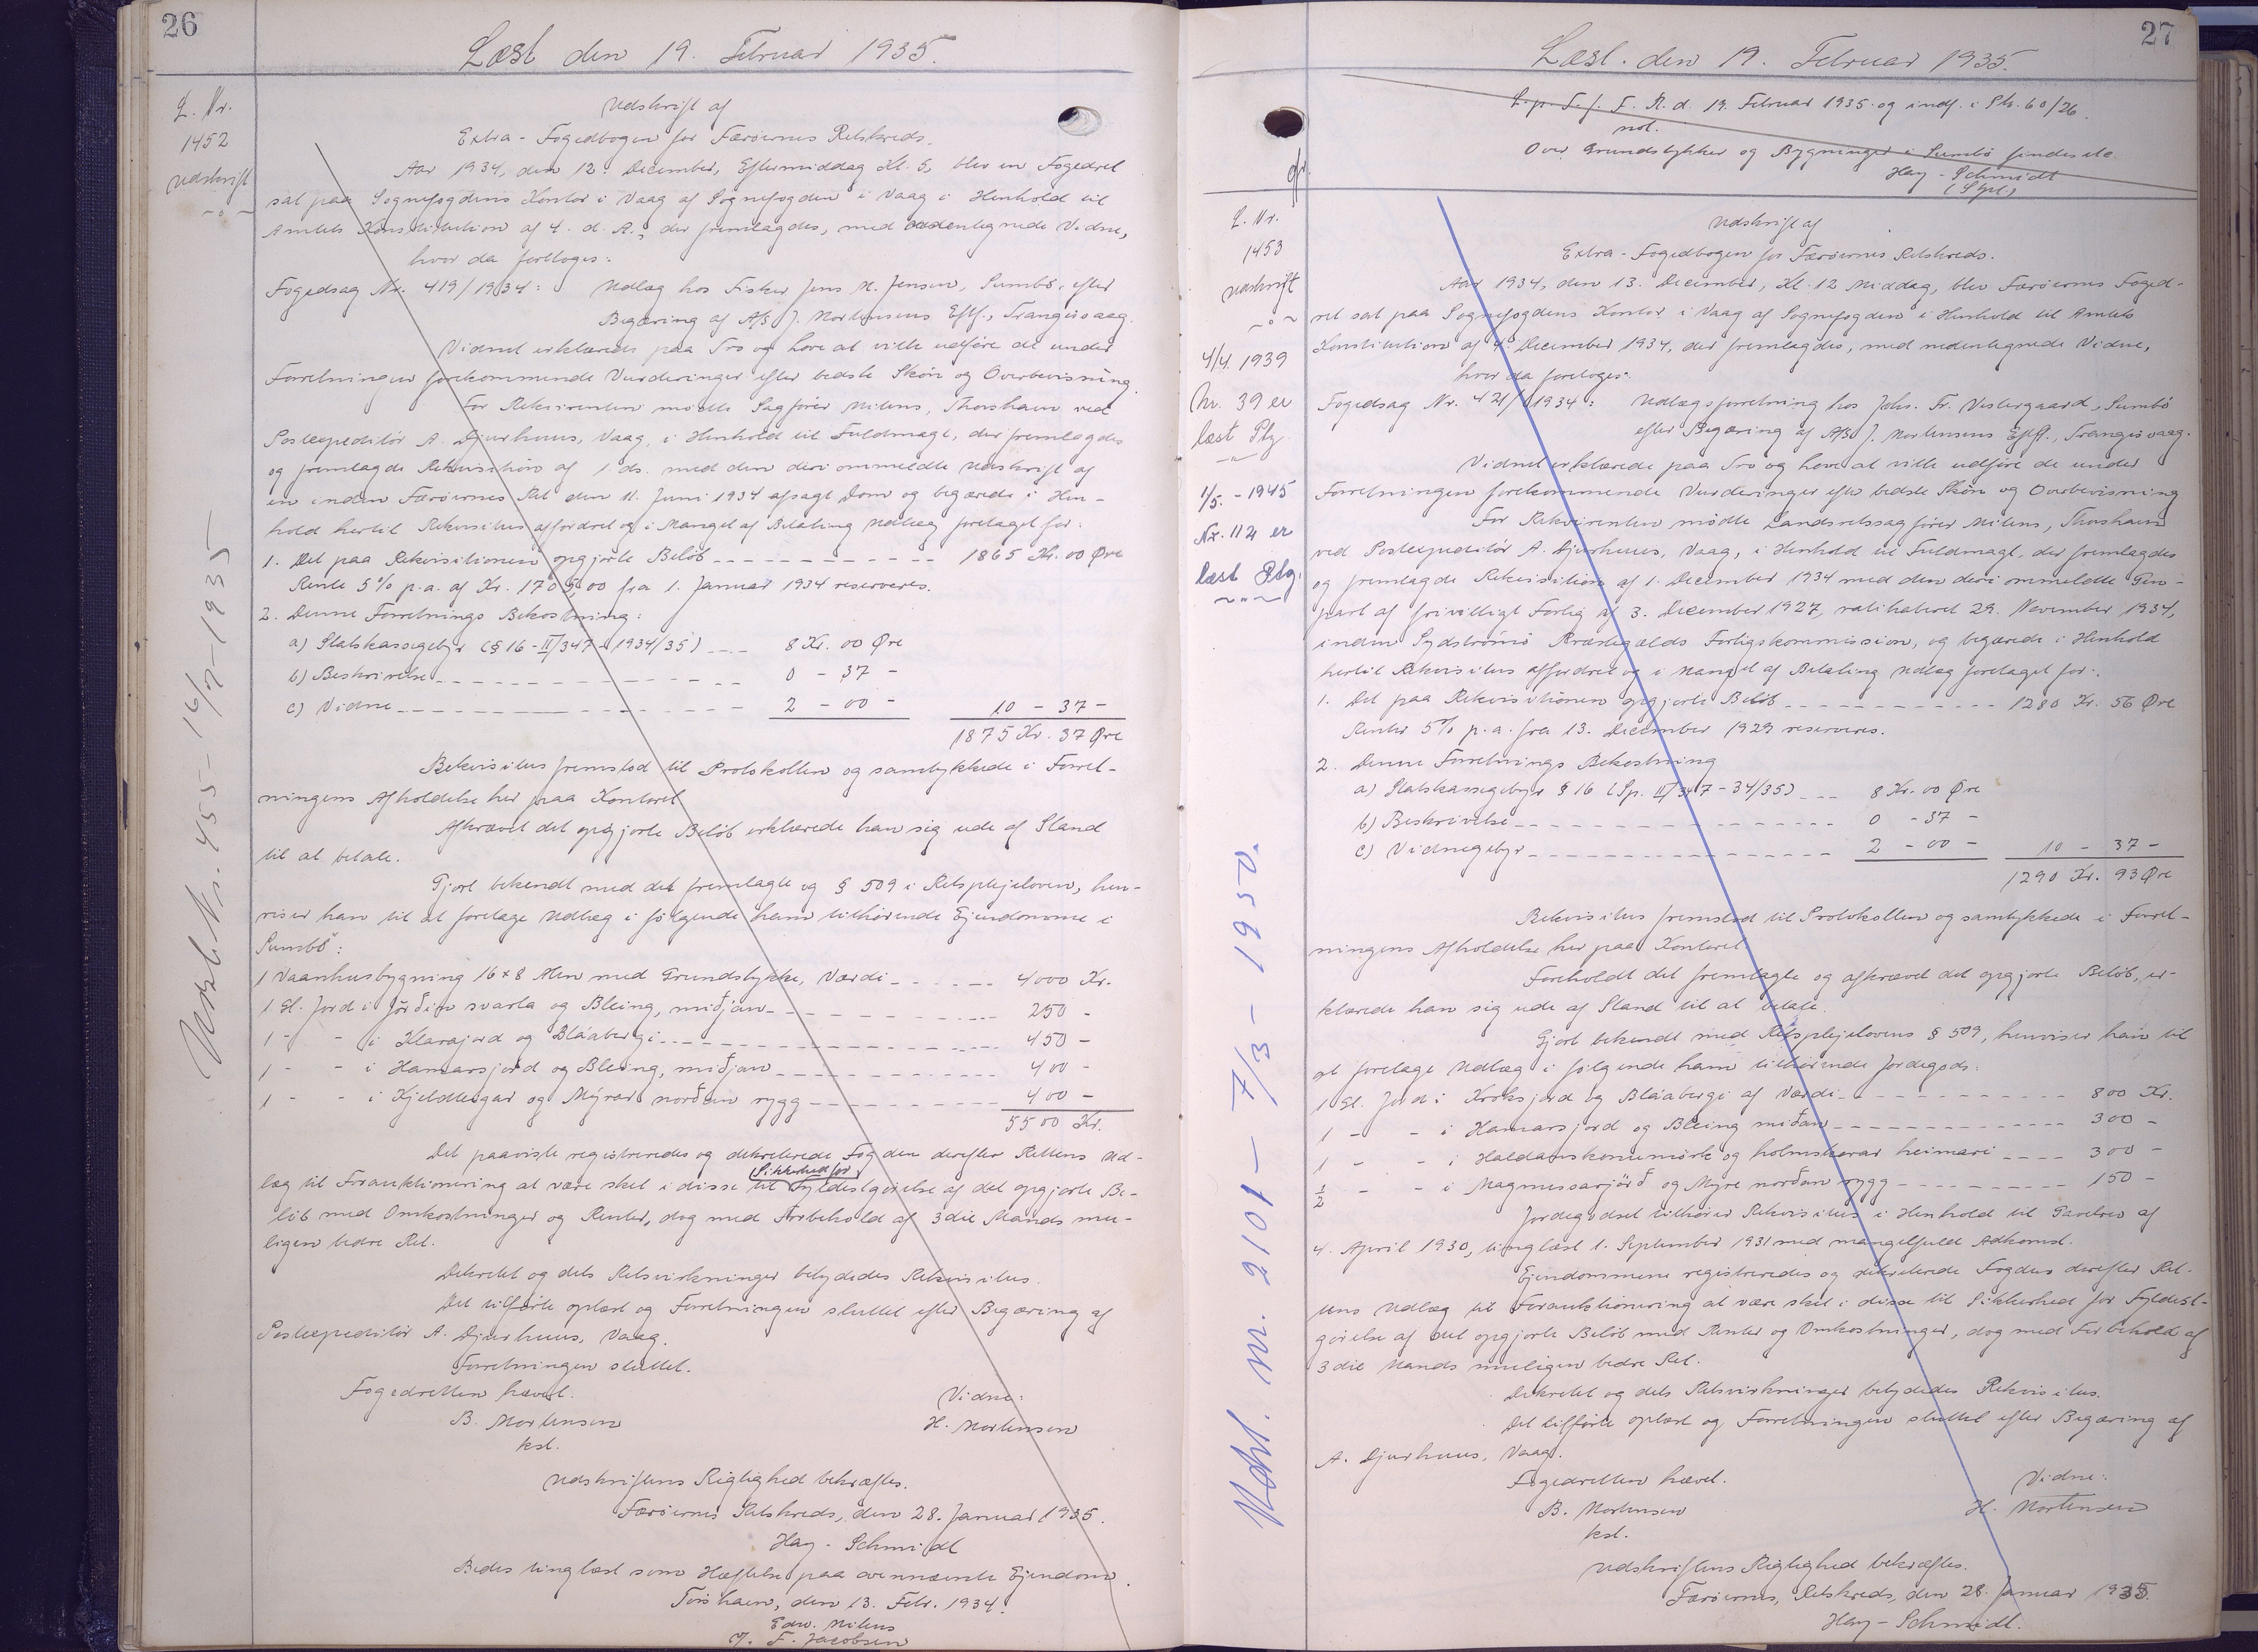 26
Læst den 19. Februar 1935.
L. Nr.
1452
Udskrift
Udsl. Nr. 455 - 16/7-1935
Udskrift af
Extra-Fogedbogen for Færøernes Retskreds.
Aar 1934, den 12. December, Eftermiddag Kl. 5, blev en Fogedret
sat paa Sognefogdens Kontor i Vaag af Sognefogden i Vaag i Henhold til
Amtets Konstitution af 4. d. A., der fremlagdes, med undertegnede Vidne,
hvor da foretoges:
Fogedsag Nr. 419/1934: Udlæg hos Fisker Jens N. Jensen, Sumbö, efter
Begæring af A/S J. Mortensens Eftf., Trangisvaag.
Vidnet erklærede paa Tro og Love at ville udføre de under
Forretningen forekommende Vurderinger efter bedste Skön og Overbevisning.
For Rekvirenten mødte Sagfører Mitens, Thorshavn ved
Postexpeditör A. Djurhuus, Vaag, i Henhold til Fuldmagt, der fremlagdes
og fremlagde Rekvisition af 1. ds. med den deri ommeldte Udskrift af
en inden Færøernes Ret den 11. Juni 1934 afsagt Dom og begærede i Hen-
hold hertil Rekvisitus affordret og i Mangel af Betaling Udlæg foretaget for:
1. Det paa Rekvisitionen opgjorte Beløb 1865 Kr. 00 Øre
Rente 5% p.a. af Kr. 1705,00 fra 1. Januar 1934 reserveres.
2. Denne Forretnings Bekostning:
a) Statskassegebyr (§ 16 - II/347 - 1934/35) 8 Kr. 00 Øre
b) Beskrivelse 0 - 37 -
c) Vidne 2 - 00 - 10 - 37 -
1875 Kr. 37 Øre
Rekvisitus fremstod til Protokollen og samtykkede i Forret-
ningens Afholdelse her paa Kontoret
Afkrævet det opgjorte Beløb erklærede han sig ude af Stand
til at betale.
Gjort bekendt med det fremlagte og § 509 i Retsplejeloven, hen-
viser han til at foretage Udlæg i følgende ham tilhørende Ejendomme i
Sumbö:
1 Vaanhusbygning 16 x 8 Alen med Grundstykke, Værdi 4000 Kr.
1 Gl. Jord i Jörðin svarta og Bleing, miðjan 250 -
1 - - i Klarajord og Bláabergi 450 -
1 - - i Hamarsjord og Bleing, miðjan 400 -
1 - - i Kjeldlugar og Mýrar norðan rygg 400 -
5500 Kr.
Det paaviste registreredes og dekreterede Fogden derefter Rettens Ud-
læg til Forauktionering at være sket i disse til Sikkerhed for Fyldestgörelse af det opgjorte Be-
löb med Omkostninger og Renter, dog med Forbehold af 3die Mands mu-
ligen bedre Ret.
Dekretet og dets Retsvirkninger betydedes Rekvisitus.
Det tilförte oplæst og Forretningen sluttet efter Begæring af
Postexpeditör A. Djurhuus, Vaag.
Forretningen sluttet.
Fogedretten hævet. Vidne:
B. Mortensen H. Mortensen
kst.
Udskriftens Rigtighed bekræftes.
Færøernes Retskreds, den 28. Januar 1935.
Hay-Schmidt
Bedes tinglæst som Hæftelse paa ovennævnte Ejendom.
Tórshavn, den 13. Febr. 1934.
Edw. Mitens
v. F. Jacobsen
27
Læst den 19. Februar 1935.
L. p. T. f. F. R. d. 19. Februar 1935 og indf. i Sk. 60/26.
not.
Over Grundstykker og Bygninger i Sumbö findes ikke
Hay-Schmidt
(Sgl.)
L. Nr.
1453
Udskrift
4/4. 1939
Nr. 39 er
læst Ptg.
1/5. - 1945
Nr. 112 er
læst Ptg.
Udsl. nr. 2101 - 7/3 - 1950.
Udskrift af
Extra-Fogedbogen for Færøernes Retskreds.
Aar 1934, den 13. December, Kl. 12 Middag, blev Færøernes Foged-
ret sat paa Sognefogdens Kontor i Vaag af Sognefogden i Henhold til Amtets
Konstitution af 4. December 1934, der fremlagdes, med nedentegnede Vidne,
hvor da foretoges:
Fogedsag Nr. 421/1934: Udlægsforretning hos Johs. Fr. Vestergaard, Sumbö
efter Begæring af A/S J. Mortensens Eftf., Trangisvaag.
Vidnet erklærede paa Tro og Love at ville udføre de under
Forretningen forekommende Vurderinger efter bedste Skön og Overbevisning
For Rekvirenten mödte Landsretssagfører Mitens, Thorshavn
ved Postexpeditör A. Djurhuus, Vaag, i Henhold til Fuldmagt, der fremlagdes
og fremlagde Rekvisition af 1. December 1934 med den deri ommeldte Gen-
part af frivilligt Forlig af 3. December 1927, ratihaberet 29. November 1934,
inden Sydströmö Præstegælds Forligskommission, og begærede i Henhold
hertil Rekvisitus affordret og i Mangel af Betaling Udlæg foretaget for:
1. Det paa Rekvisitionen opgjorte Beløb 1280 Kr. 56 Øre
Renter 5% p.a. fra 13. December 1929 reserveres.
2. Denne Forretnings Bekostning
a) Statskassegebyr § 16 (Sp. II/347 - 34/35) 8 Kr. 00 Øre
b) Beskrivelse 0 - 37 -
c) Vidnegebyr 2 - 00 - 10 - 37 -
1290 Kr. 93 Øre
Rekvisitus fremstod til Protokollen og samtykkede i Forret-
ningens Afholdelse her paa Kontoret
Foreholdt det fremlagte og afkrævet det opgjorte Beløb, er-
klærede han sig ude af Stand til at betale.
Gjort bekendt med Retsplejelovens § 509, henviser han til
at foretage Udlæg i følgende ham tilhørende Jordegods:
1 Gl. Jord i Kroksjord og Bláabergi af Værdi 800 Kr.
1 - - i Hamarsjord og Bleing miðan 300 -
1 - - i Haldanskonumörk og holmskorar heimari 300 -
1/2 - - i Magnussarjörð og Myre norðan rygg 150 -
Jordegodset tilhörer Rekvisitus i Henhold til Gavebrev af
4. April 1930, tinglæst 1. September 1931 med mangelfuld Adkomst.
Ejendommene registreredes og dekreterede Fogden derefter Ret-
tens Udlæg til Forauktionering at være sket i disse til Sikkerhed for Fyldest-
görelse af det opgjorte Beløb med Renter og Omkostninger, dog med Forbehold af
3die Mands muligen bedre Ret.
Dekretet og dets Retsvirkninger betydedes Rekvisitus.
Det tilförte oplæst og Forretningen sluttet efter Begæring af
A. Djurhuus, Vaag.
Fogedretten hævet. Vidne:
B. Mortensen H. Mortensen
kst.
Udskriftens Rigtighed bekræftes.
Færøernes Retskreds, den 28. Januar 1935.
Hay-Schmidt.